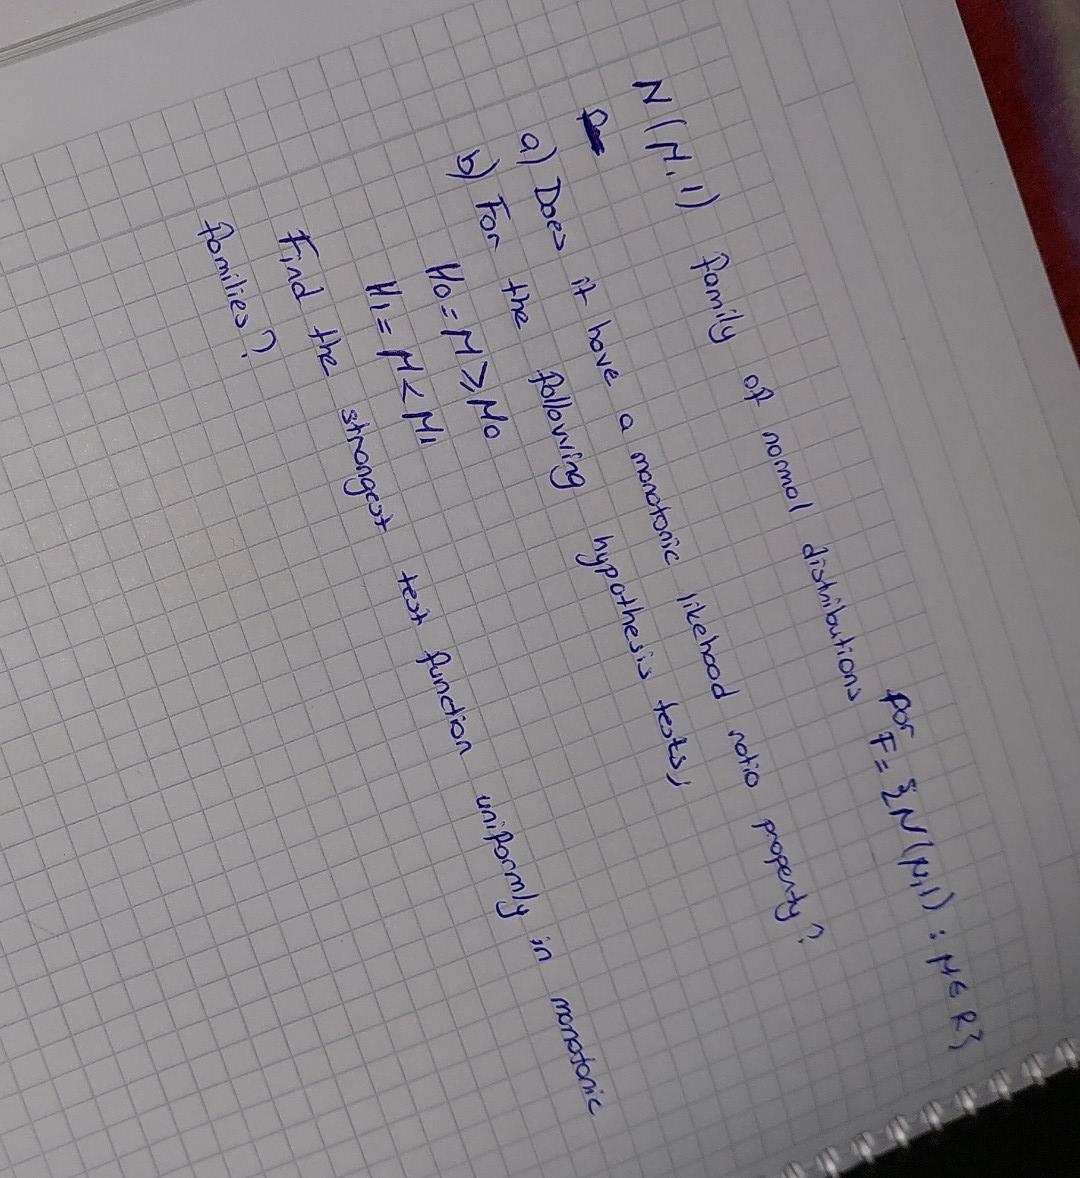 for F = {N(μ,1) : μ ∈ R}
N(μ,1) family of normal distributions
a) Does it have a monotonic likehood ratio property?
b) For the following hypothesis tests,
H0 = μ ≥ μ0
H1 = μ < μ1
Find the strongest test function uniformly in monotonic
families?